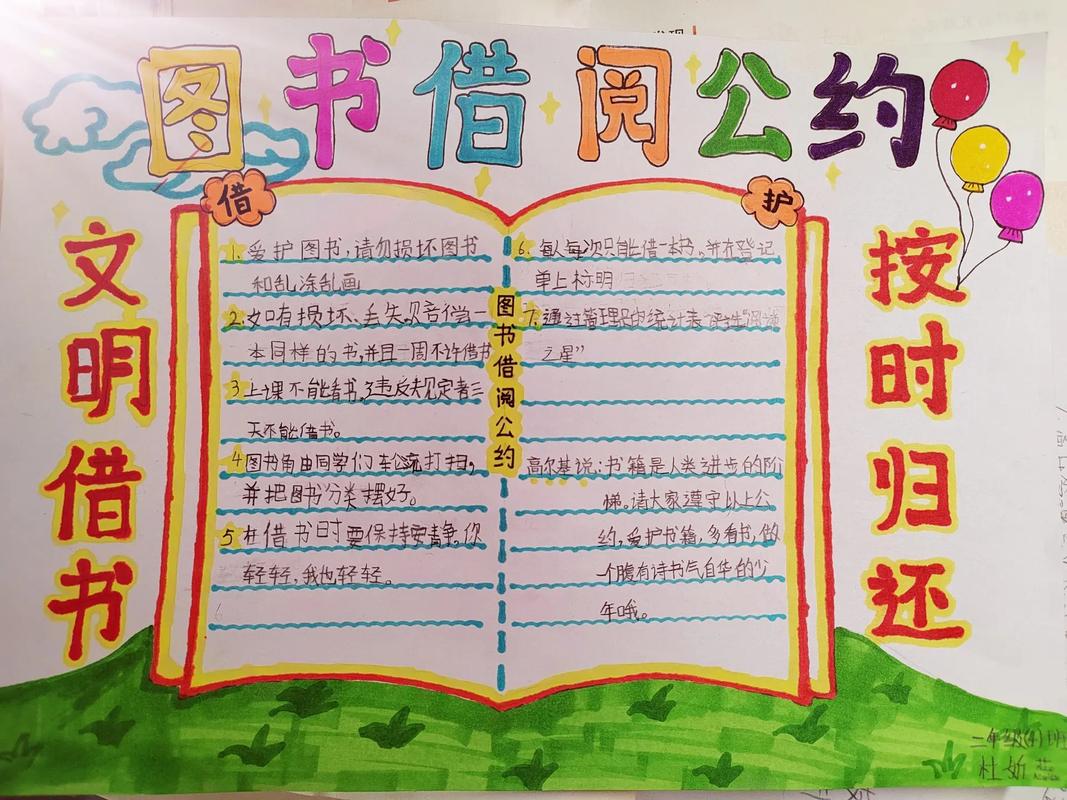 图书借阅公约
借
护
文明借书
按时归还
图书借阅公约
1. 爱护图书,请勿损坏图书
和乱涂乱画
2. 如有损坏、丢失,赔偿一
本同样的书,并且一周不许借书
3 上课不能看书,违反规定者三
天不能借书。
4 图书角由同学们轮流打扫,
并把图书分类摆好。
5 在借书时要保持安静,你
轻轻,我也轻轻。
6
6. 每人每次只能借一本书。并在登记
单上标明
7. 通过管理员的统计表评选"阅读
之星”
高尔基说:书籍是人类进步的阶
梯。请大家遵守以上公
约,爱护书籍,多看书,做
一个腹有诗书气自华的少
年哦。
二年级(4)班
杜妡